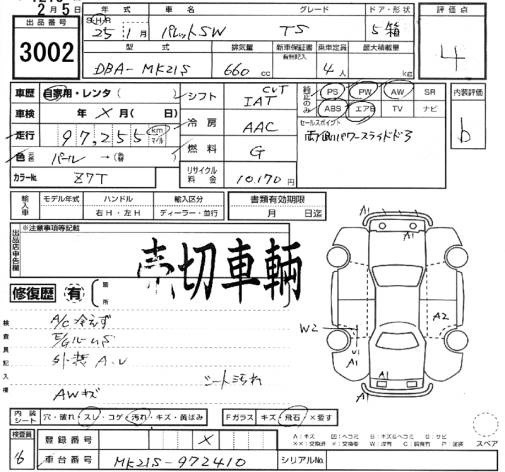 2月5日
出品番号
3002
年 式 車 名 グレード ドア・形状
25年1月 パレットSW TS 5 箱
型 式 排気量 新車保証書 乗車定員 最大積載量
有無記入
DBA-MK21S 660 cc 4人 kg
評 価 点
4
車歴 自家用・レンタ( )
車検 年 × 月( 日)
走行 97,255 km マイル
色 パール →(替 )
カラーNo. Z7T
シフト CVT IAT
冷 房 AAC
燃 料 G
リサイクル料 金 10,170円
純正のみ PS PW AW SR
ABS エアB TV ナビ
セールスポイント
両側パワースライドドア
内装評価
b
輸入車 モデル年式 ハンドル 輸入区分
右H・左H ディーラー・並行
書類有効期限
月 日迄
出品店申告欄
※注意事項等記載
売切車輌
修復歴 有 箇所
検査員記入欄
A/C冷えず
外装 A.U
AWキズ
シート汚れ
A1
A1
W2
A2
U1
A1
A1
内装シート 穴・破れ・スレ・コゲ・汚れ・キズ・黄ばみ
Fガラス キズ・飛石・×要す
A:キズ U:ヘコミ B:キズ&ヘコミ S:サビ
××:交換済 ×:交換要 W:波有 C:腐食有 P:塗装
スペア
検査員
16
登録番号 ×
車台番号 MK21S-972410
シリアルNo.